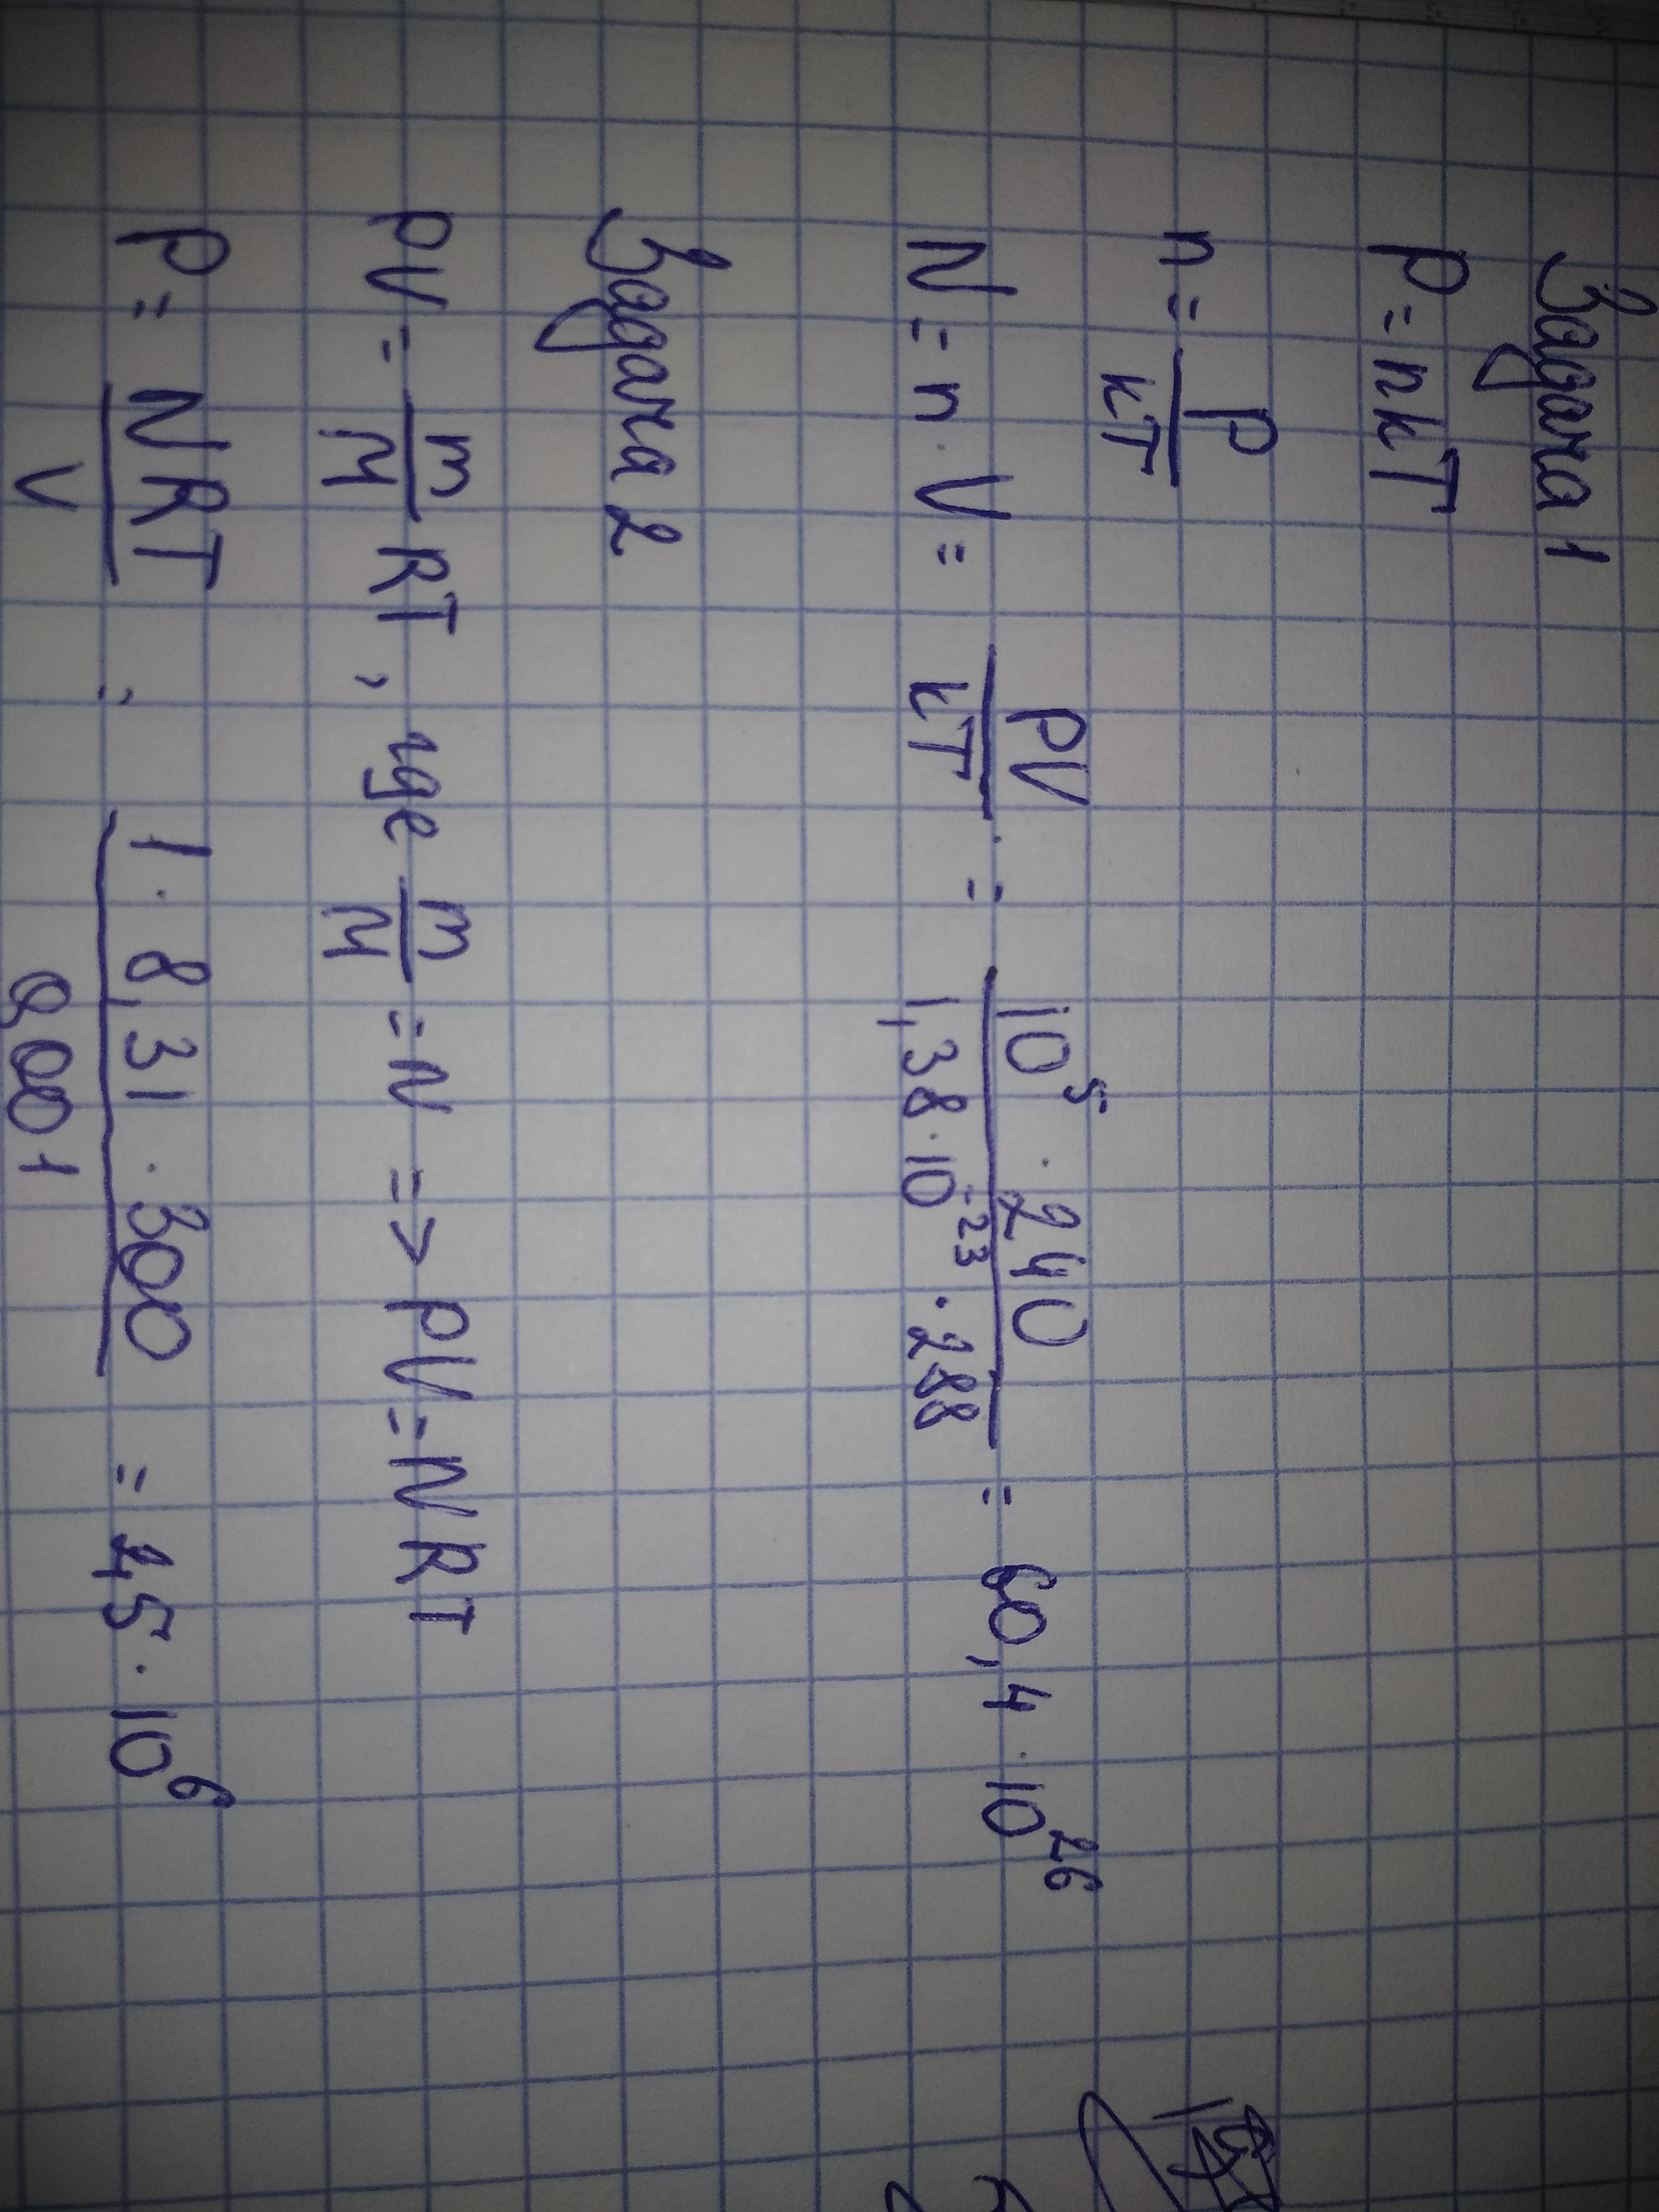 Задача 1
P = nkT
n = P/kT
N = n · V = PV/kT = 10⁵ · 240 / 1,38 · 10⁻²³ · 288 = 60,4 · 10²⁶
Задача 2
PV = m/M RT, где m/M = N => PV = NRT
P = NRT/V = 1 · 8,31 · 300 / 0,001 = 2,5 · 10⁶